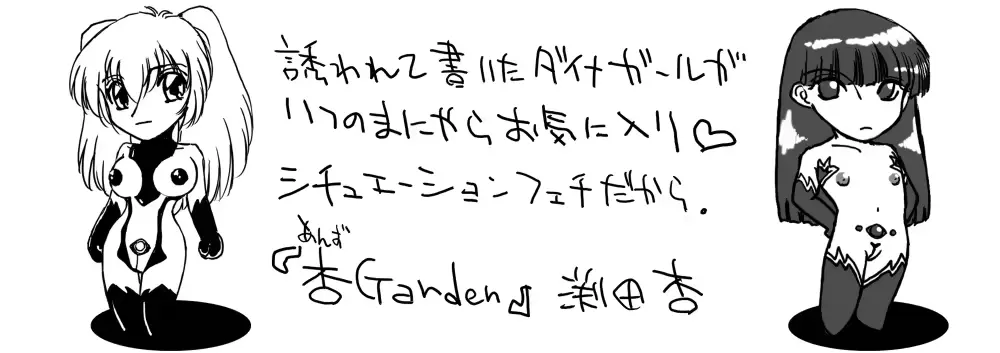 誘われて書いたダイナガールが
いつのまにやらお気に入り♡
シチュエーションフェチだから.
あんず
『杏Garden』 渕田 杏